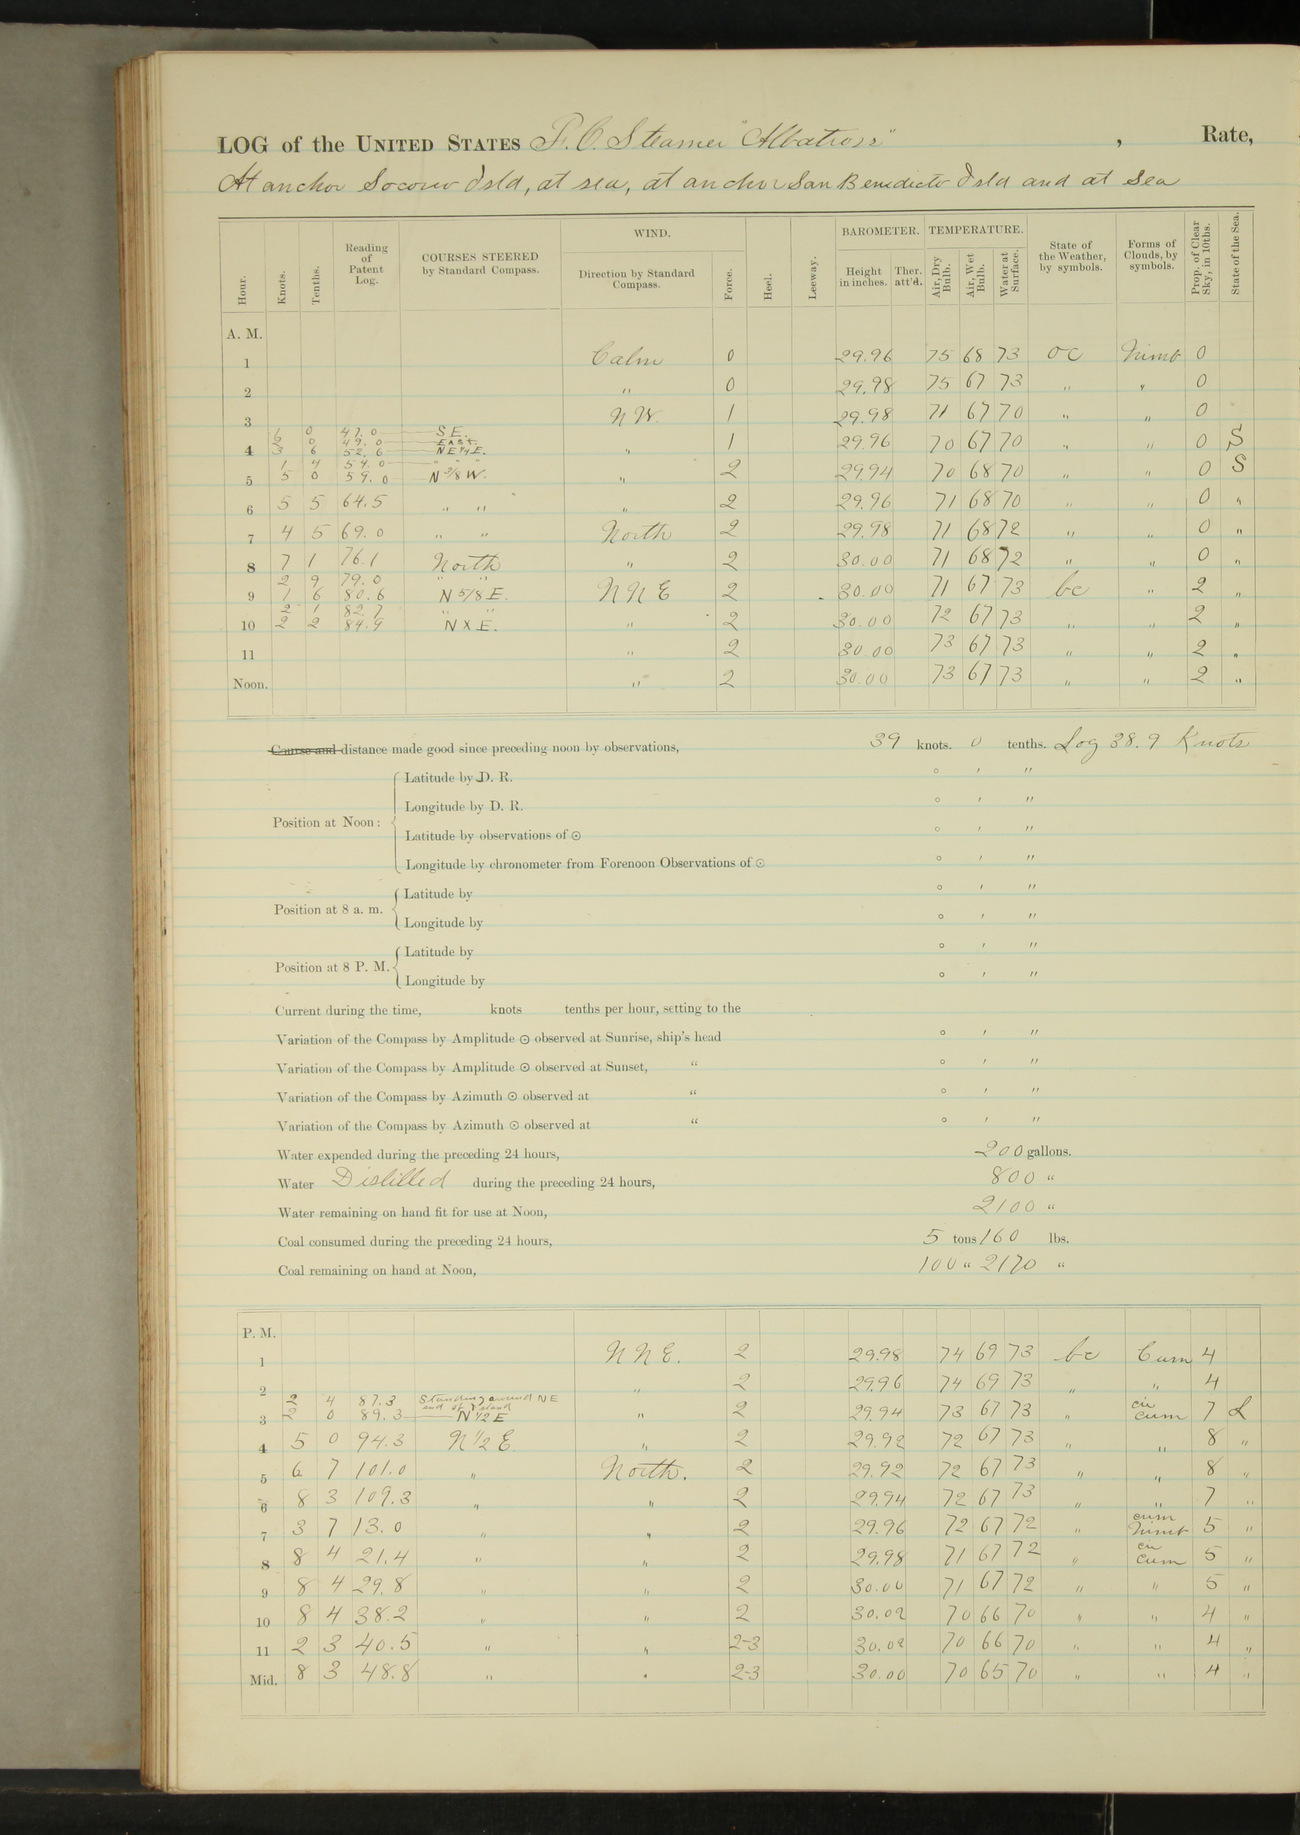 LOG of the UNITED STATES F. C. Steamer "Albatross" , Rate,
At anchor Socorro Isld, at sea, at anchor San Benedicto Isld and at Sea
Hour. Knots. Tenths. Reading of Patent Log. COURSES STEERED by Standard Compass. WIND. Direction by Standard Compass. Force. Heel. Leeway. BAROMETER. Height in inches. Ther. att'd. TEMPERATURE. Air, Dry Bulb. Air, Wet Bulb. Water at Surface. State of the Weather, by symbols. Forms of Clouds, by symbols. Prop. of Clear Sky, in 10ths. State of the Sea.
A. M.
1 Calm 0 29.96 75 68 73 oc Nimb 0
2 " 0 29.98 75 67 73 " " 0
3 N W. 1 29.98 71 67 70 " " 0
1 0 47.0 S E.
2 0 49.0 East
4 3 6 52.6 NE " 1 29.96 70 67 70 " " 0 S
1 4 54.0 " "
5 5 0 59.0 N 3/8 W. " 2 29.94 70 68 70 " " 0 S
6 5 5 64.5 " " " 2 29.96 71 68 70 " " 0 "
7 4 5 69.0 " " North 2 29.98 71 68 72 " " 0 "
8 7 1 76.1 North " 2 30.00 71 68 72 " " 0 "
2 9 79.0 " "
9 1 6 80.6 N 5/8 E. N N E 2 30.00 71 67 73 bc " 2 "
2 1 82.7 " "
10 2 2 84.9 N X E. " 2 30.00 72 67 73 " " 2 "
11 " 2 30.00 73 67 73 " " 2 "
Noon. " 2 30.00 73 67 73 " " 2 "
Course and distance made good since preceding noon by observations, 39 knots. 0 tenths. Log 38.9 Knots
Latitude by D. R. ° ′ ″
Longitude by D. R. ° ′ ″
Position at Noon:
Latitude by observations of ⊙ ° ′ ″
Longitude by chronometer from Forenoon Observations of ⊙ ° ′ ″
Latitude by ° ′ ″
Position at 8 a. m.
Longitude by ° ′ ″
Latitude by ° ′ ″
Position at 8 P. M.
Longitude by ° ′ ″
Current during the time, knots tenths per hour, setting to the
Variation of the Compass by Amplitude ⊙ observed at Sunrise, ship's head ° ′ ″
Variation of the Compass by Amplitude ⊙ observed at Sunset, " ° ′ ″
Variation of the Compass by Azimuth ⊙ observed at " ° ′ ″
Variation of the Compass by Azimuth ⊙ observed at " ° ′ ″
Water expended during the preceding 24 hours, 200 gallons.
Water Distilled during the preceding 24 hours, 800 "
Water remaining on hand fit for use at Noon, 2100 "
Coal consumed during the preceding 24 hours, 5 tons 160 lbs.
Coal remaining on hand at Noon, 100 " 2170 "
P. M.
1 N N E. 2 29.98 74 69 73 bc Cum 4
2 " 2 29.96 74 69 73 " " 4
2 4 87.3 Standing around NE end of Island
3 2 0 89.3 N 1/2 E " 2 29.94 73 67 73 " cir cum 7 L
4 5 0 94.3 N 1/2 E. " 2 29.92 72 67 73 " " 8 "
5 6 7 101.0 " North. 2 29.92 72 67 73 " " 8 "
6 8 3 109.3 " " 2 29.94 72 67 73 " " 7 "
7 3 7 13.0 " " 2 29.96 72 67 72 " cum Nimb 5 "
8 8 4 21.4 " " 2 29.98 71 67 72 " cir cum 5 "
9 8 4 29.8 " " 2 30.00 71 67 72 " " 5 "
10 8 4 38.2 " " 2 30.02 70 66 70 " " 4 "
11 2 3 40.5 " " 2-3 30.02 70 66 70 " " 4 "
Mid. 8 3 48.8 " " 2-3 30.00 70 65 70 " " 4 "